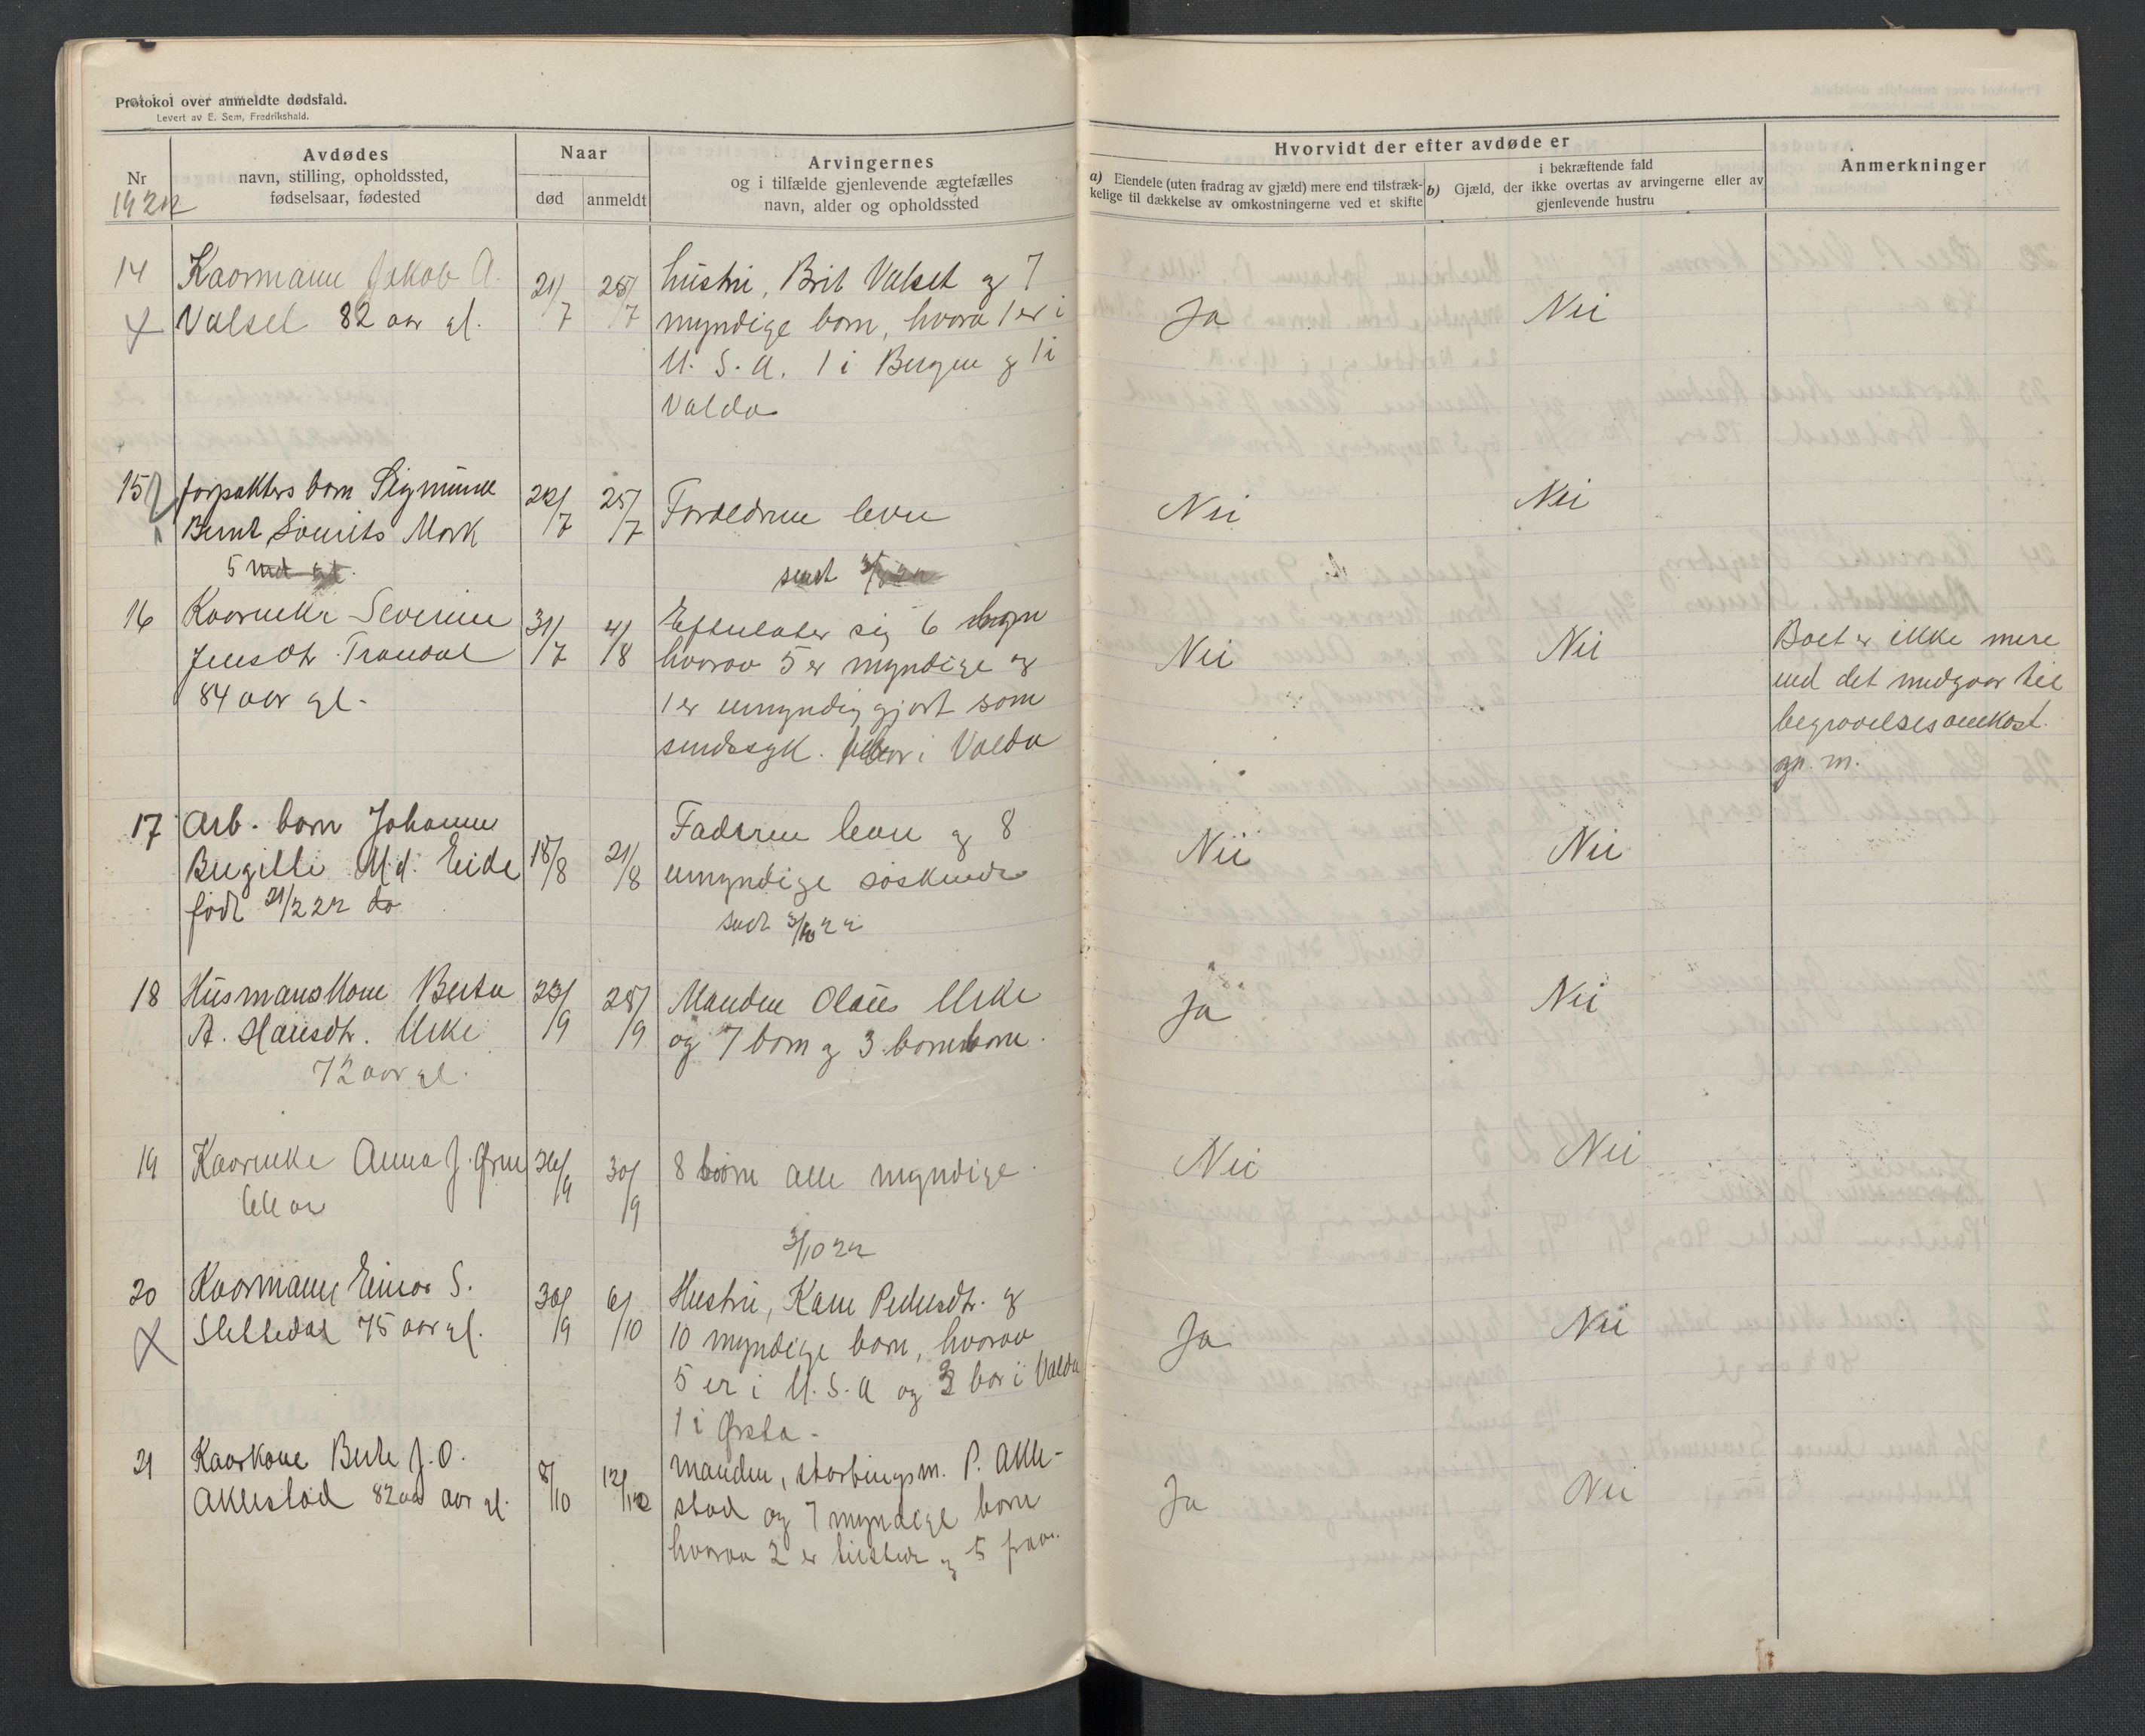 Protokol over anmeldte dødsfald.
Levert av E. Sem, Fredrikshald.
Nr
1922
Avdødes
navn, stilling, opholdssted,
fødselsaar, fødested
Naar
død anmeldt
Arvingernes
og i tilfælde gjenlevende ægtefælles
navn, alder og opholdssted
Hvorvidt der efter avdøde er
a) Eiendele (uten fradrag av gjæld) mere end tilstræk-
kelige til dækkelse av omkostningerne ved et skifte
i bekræftende fald
b) Gjæld, der ikke overtas av arvingerne eller av
gjenlevende hustru
Anmerkninger
14 Kaarmann Jakob A.
Valset 82 aar gl.
21/7 25/7
hustru, Brit Valset og 7
myndige born, hvorav 1 er i
U. S. A. 1 i Bergen og 1 i
Volda
Ja Nei
15 forpakters barn Sigmund
Bernt Mork
5 md gl.
22/7 25/7
Foreldrene lever
Nei Nei
sendt
16 Kaarenke Severine
Jensdtr. Trandal
84 aar gl.
31/7 4/8
Efterlater sig 6 born
hvorav 5 er myndige og
1 er umyndiggjort som
sindssyk. bor i Volda
Nei Nei
Boet er ikke mere
end det medgaar til
begravelsesomkost.
gn. m.
17 Arb. barn Johanne
Birgitte M.d. Eide
født 21/2 22
18/8 21/8
Faderen lever og 8
umyndige søskende
sendt 3/10 22
Nei Nei
18 Husmanskone Berte
A. Hansdtr. Urke
72 aar gl.
23/9 25/9
Manden Olaus Urke
og 7 born og 3 borneborn.
Ja Nei
19 Kaarenke Anna J.
30/9
8 born alle myndige
Nei Nei
3/10 22
20 Kaarmann Einar S.
Slettedal 75 aar gl.
30/9 6/10
Hustru, Kane Pedersdtr. og
10 myndige born, hvorav
5 er i U. S. A og 3 bor i Volda
1 i Ørsta.
Ja Nei
21 Kaarkone Berte J. O.
Aklestad 82 aar gl.
8/10 12/10
manden, stortingsm. P. Akle-
stad og 7 myndige born
hvorav 2 er tilstede og 5 frav.
Ja Nei